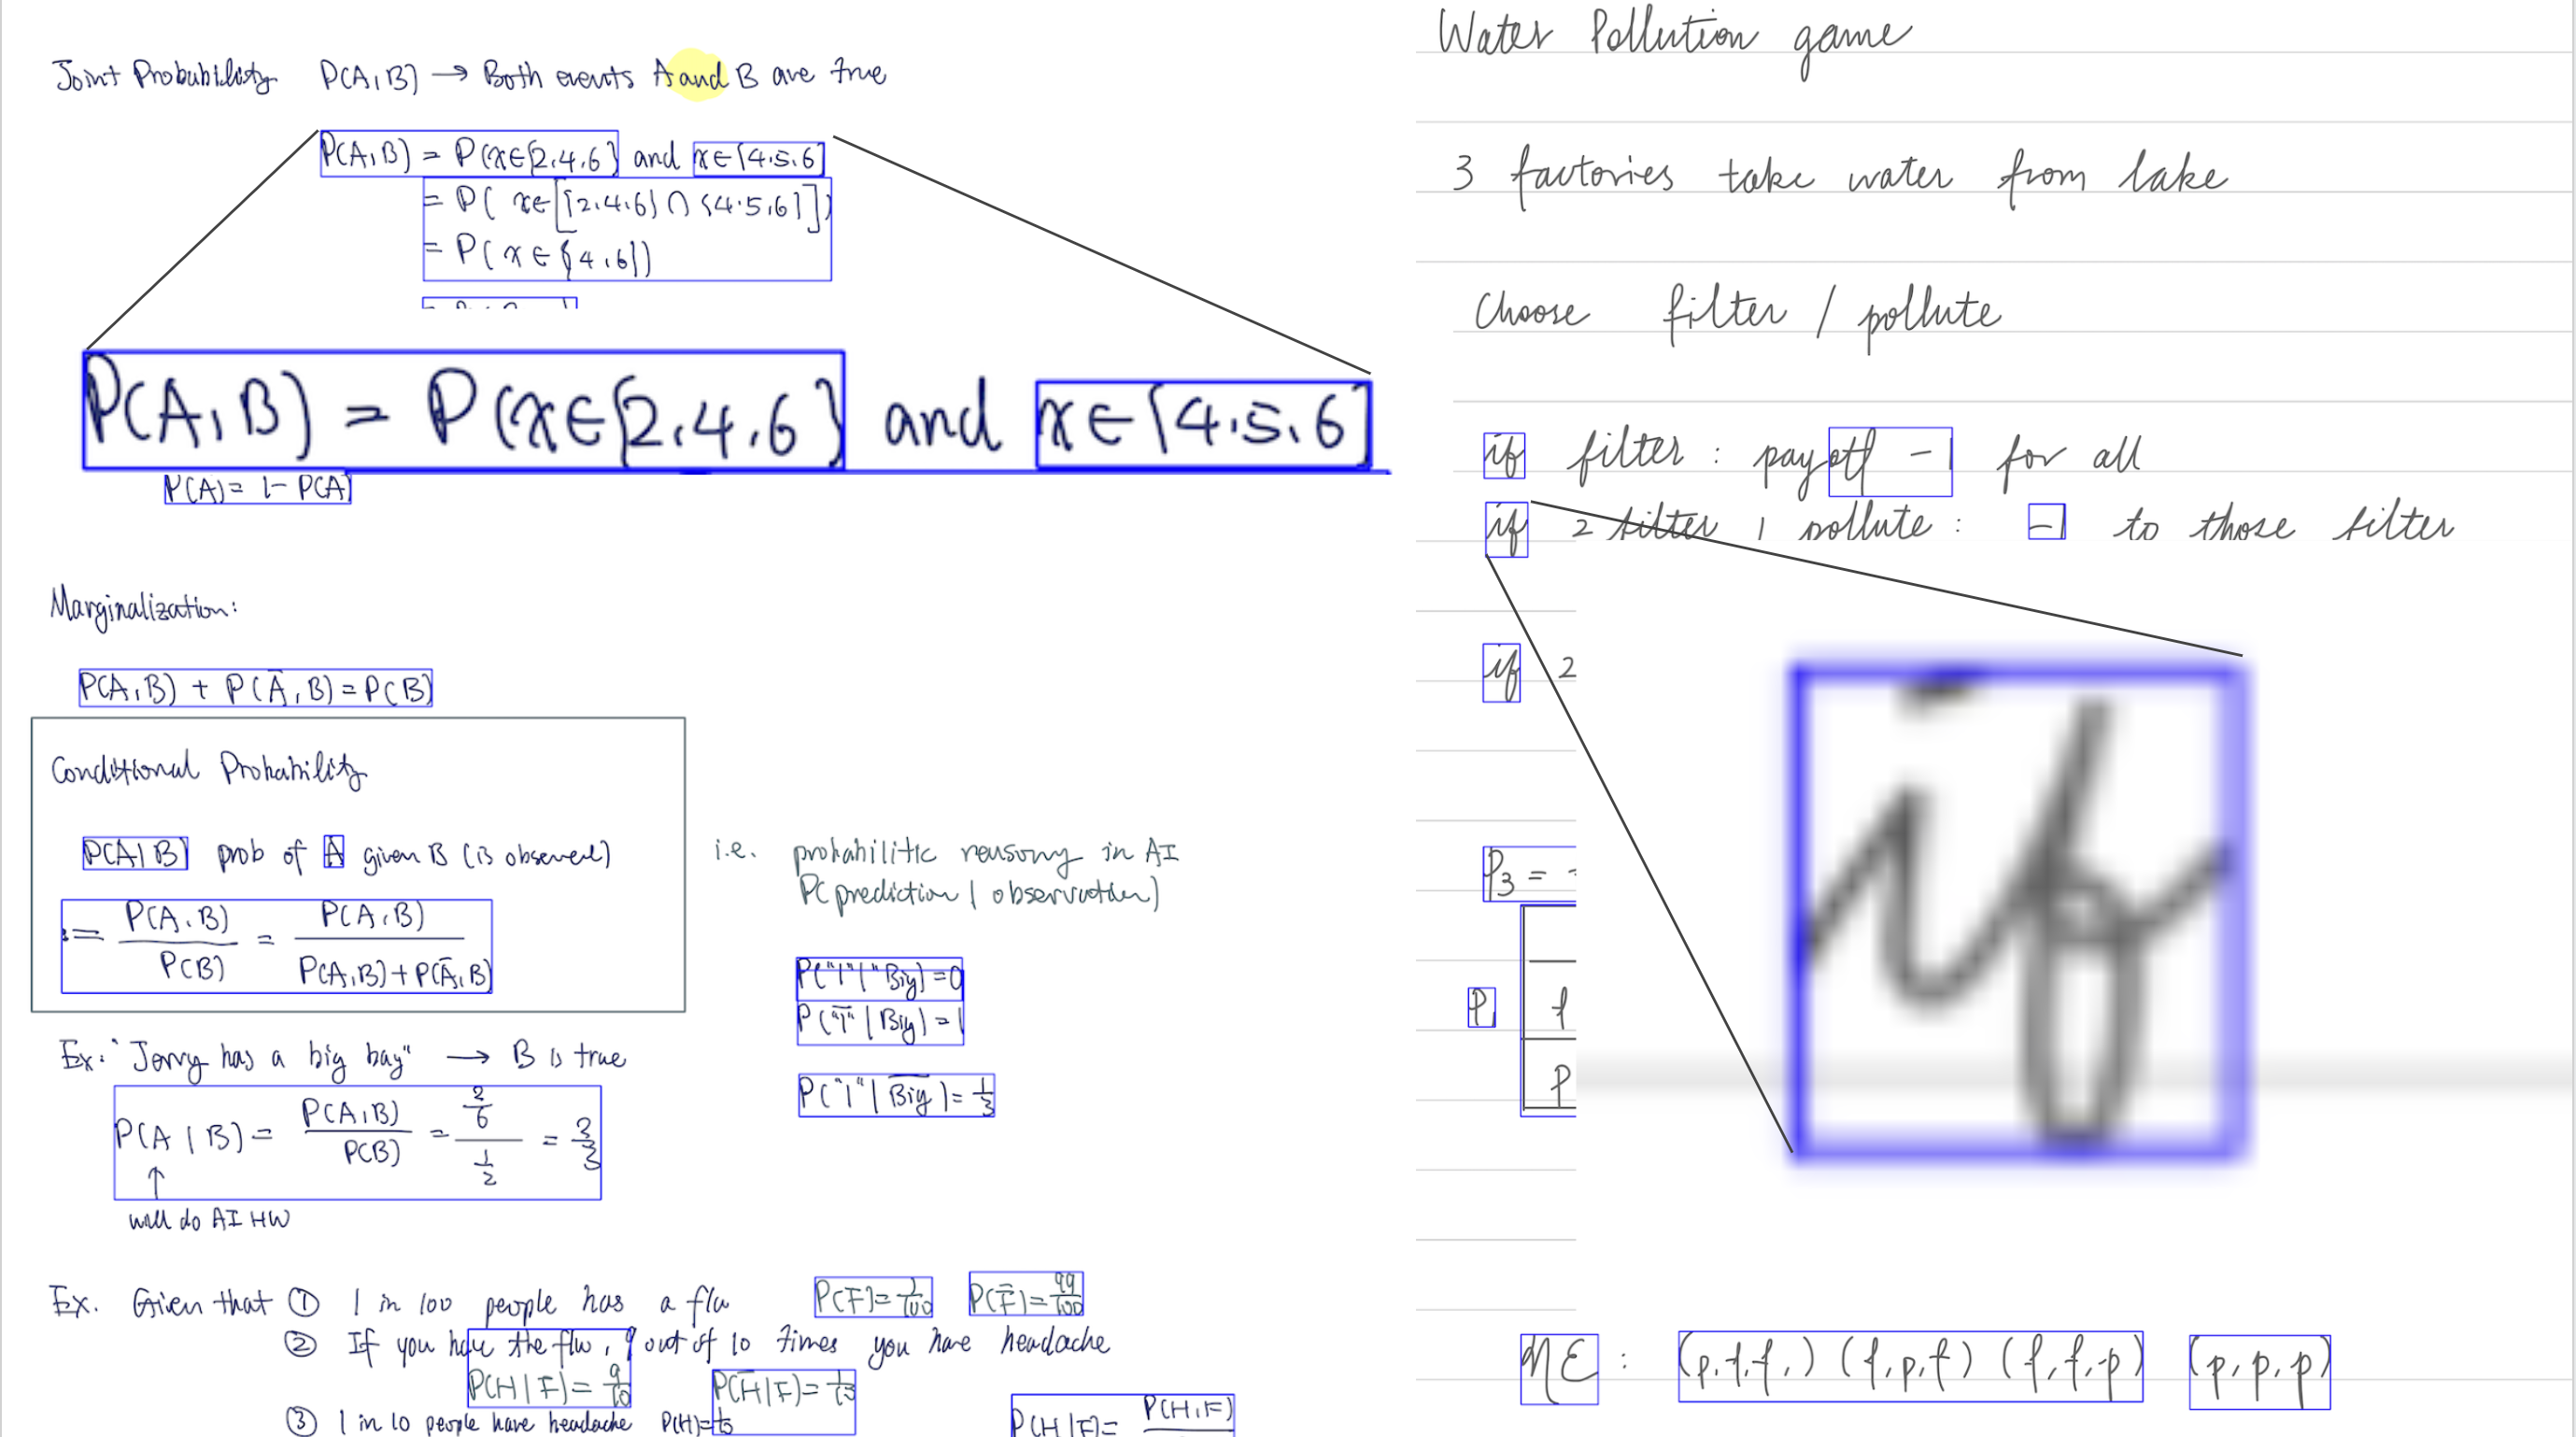 Joint Probability P(A,B) → Both events A and B are true
P(A,B) = P(x∈{2,4,6} and x∈{4,5,6}
= P( x∈[{2,4,6} ∩ {4,5,6}])
= P(x∈{4,6})
P(A,B) = P(x∈{2,4,6} and x∈{4,5,6}
P(A) = 1- P(A)
Marginalization:
P(A,B) + P(Ā,B) = P(B)
Conditional Probability
P(A|B) prob of A given B (B observed)
:= P(A,B) / P(B) = P(A,B) / P(A,B)+P(Ā,B)
i.e. probabilitic reasong in AI
P(prediction | observation)
P("1"|"Big) = 0
P("1̄" | Big) = 1
P("1" | B̅i̅g̅) = 1/3
Ex: "Jerry has a big bag" → B is true
P(A | B) = P(A,B) / P(B) = 2/6 / 1/2 = 2/3
↑
will do AI HW
Ex. Given that ① 1 in 100 people has a flu P(F) = 1/100 P(F̄) = 99/100
② If you have the flu, 9 out of 10 times you have headache
P(H|F) = 9/10 P(H̄|F) = 1/10
③ 1 in 10 people have headache P(H)=1/10
P(H|F) = P(H,F)
Water Pollution game
3 factories take water from lake
Choose filter / pollute
if filter : payoff -1 for all
if 2 filter 1 pollute : -1 to those filter
if 2
if
P3 = -
P1
f
p
NE : (p,f,f,) (f,p,f) (f,f,p) (p,p,p)